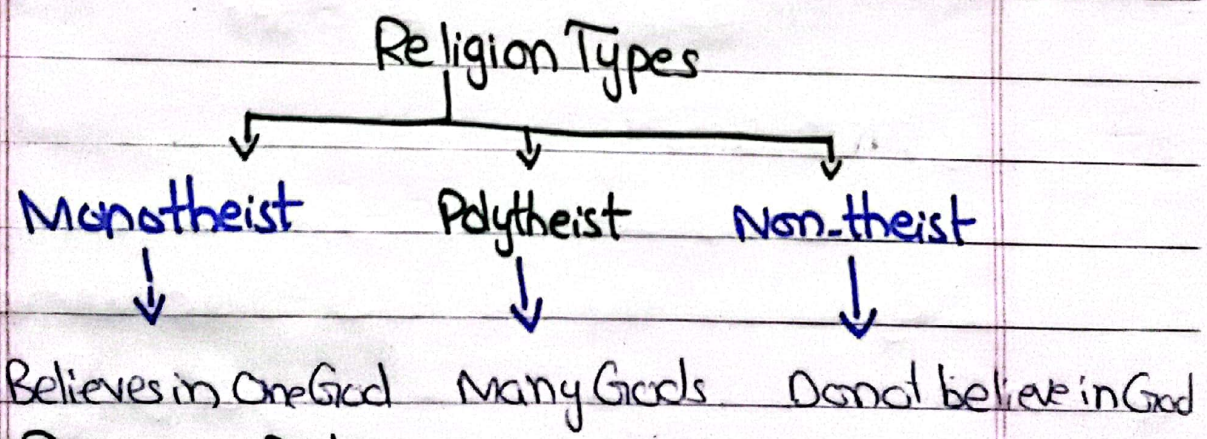 Religion Types
Monotheist Polytheist Non-theist
Believes in One God Many Gods Do not believe in God